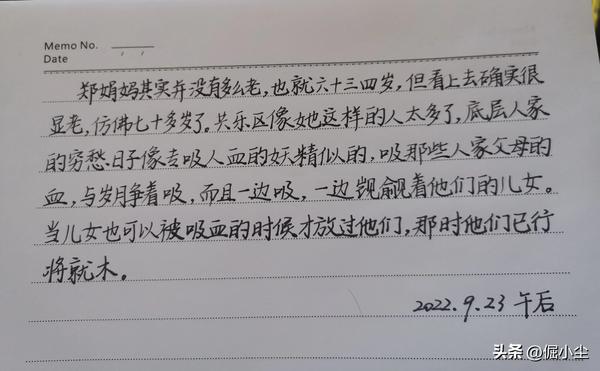 Memo No.
Date
郑娟妈其实并没有多么老，也就六十三四岁，但看上去确实很
显老，仿佛七十多岁了。共乐区像她这样的人太多了，底层人家
的穷愁日子像专吸人血的妖精似的，吸那些人家父母的
血，与岁月争着吸，而且一边吸，一边觊觎着他们的儿女。
当儿女也可以被吸血的时候才放过他们，那时他们已行
将就木。
2022.9.23 午后
头条 @倔小尘